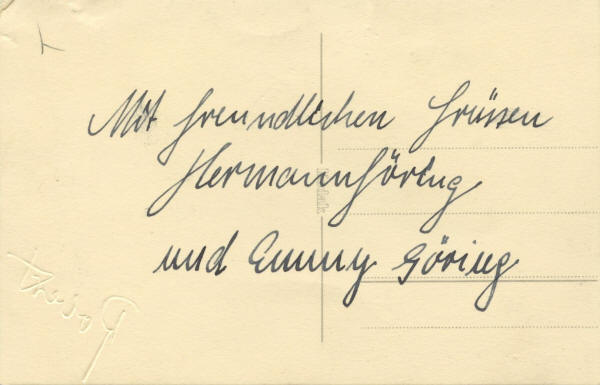 Mit freundlichen Grüssen
Hermann Göring
und Emmy Göring